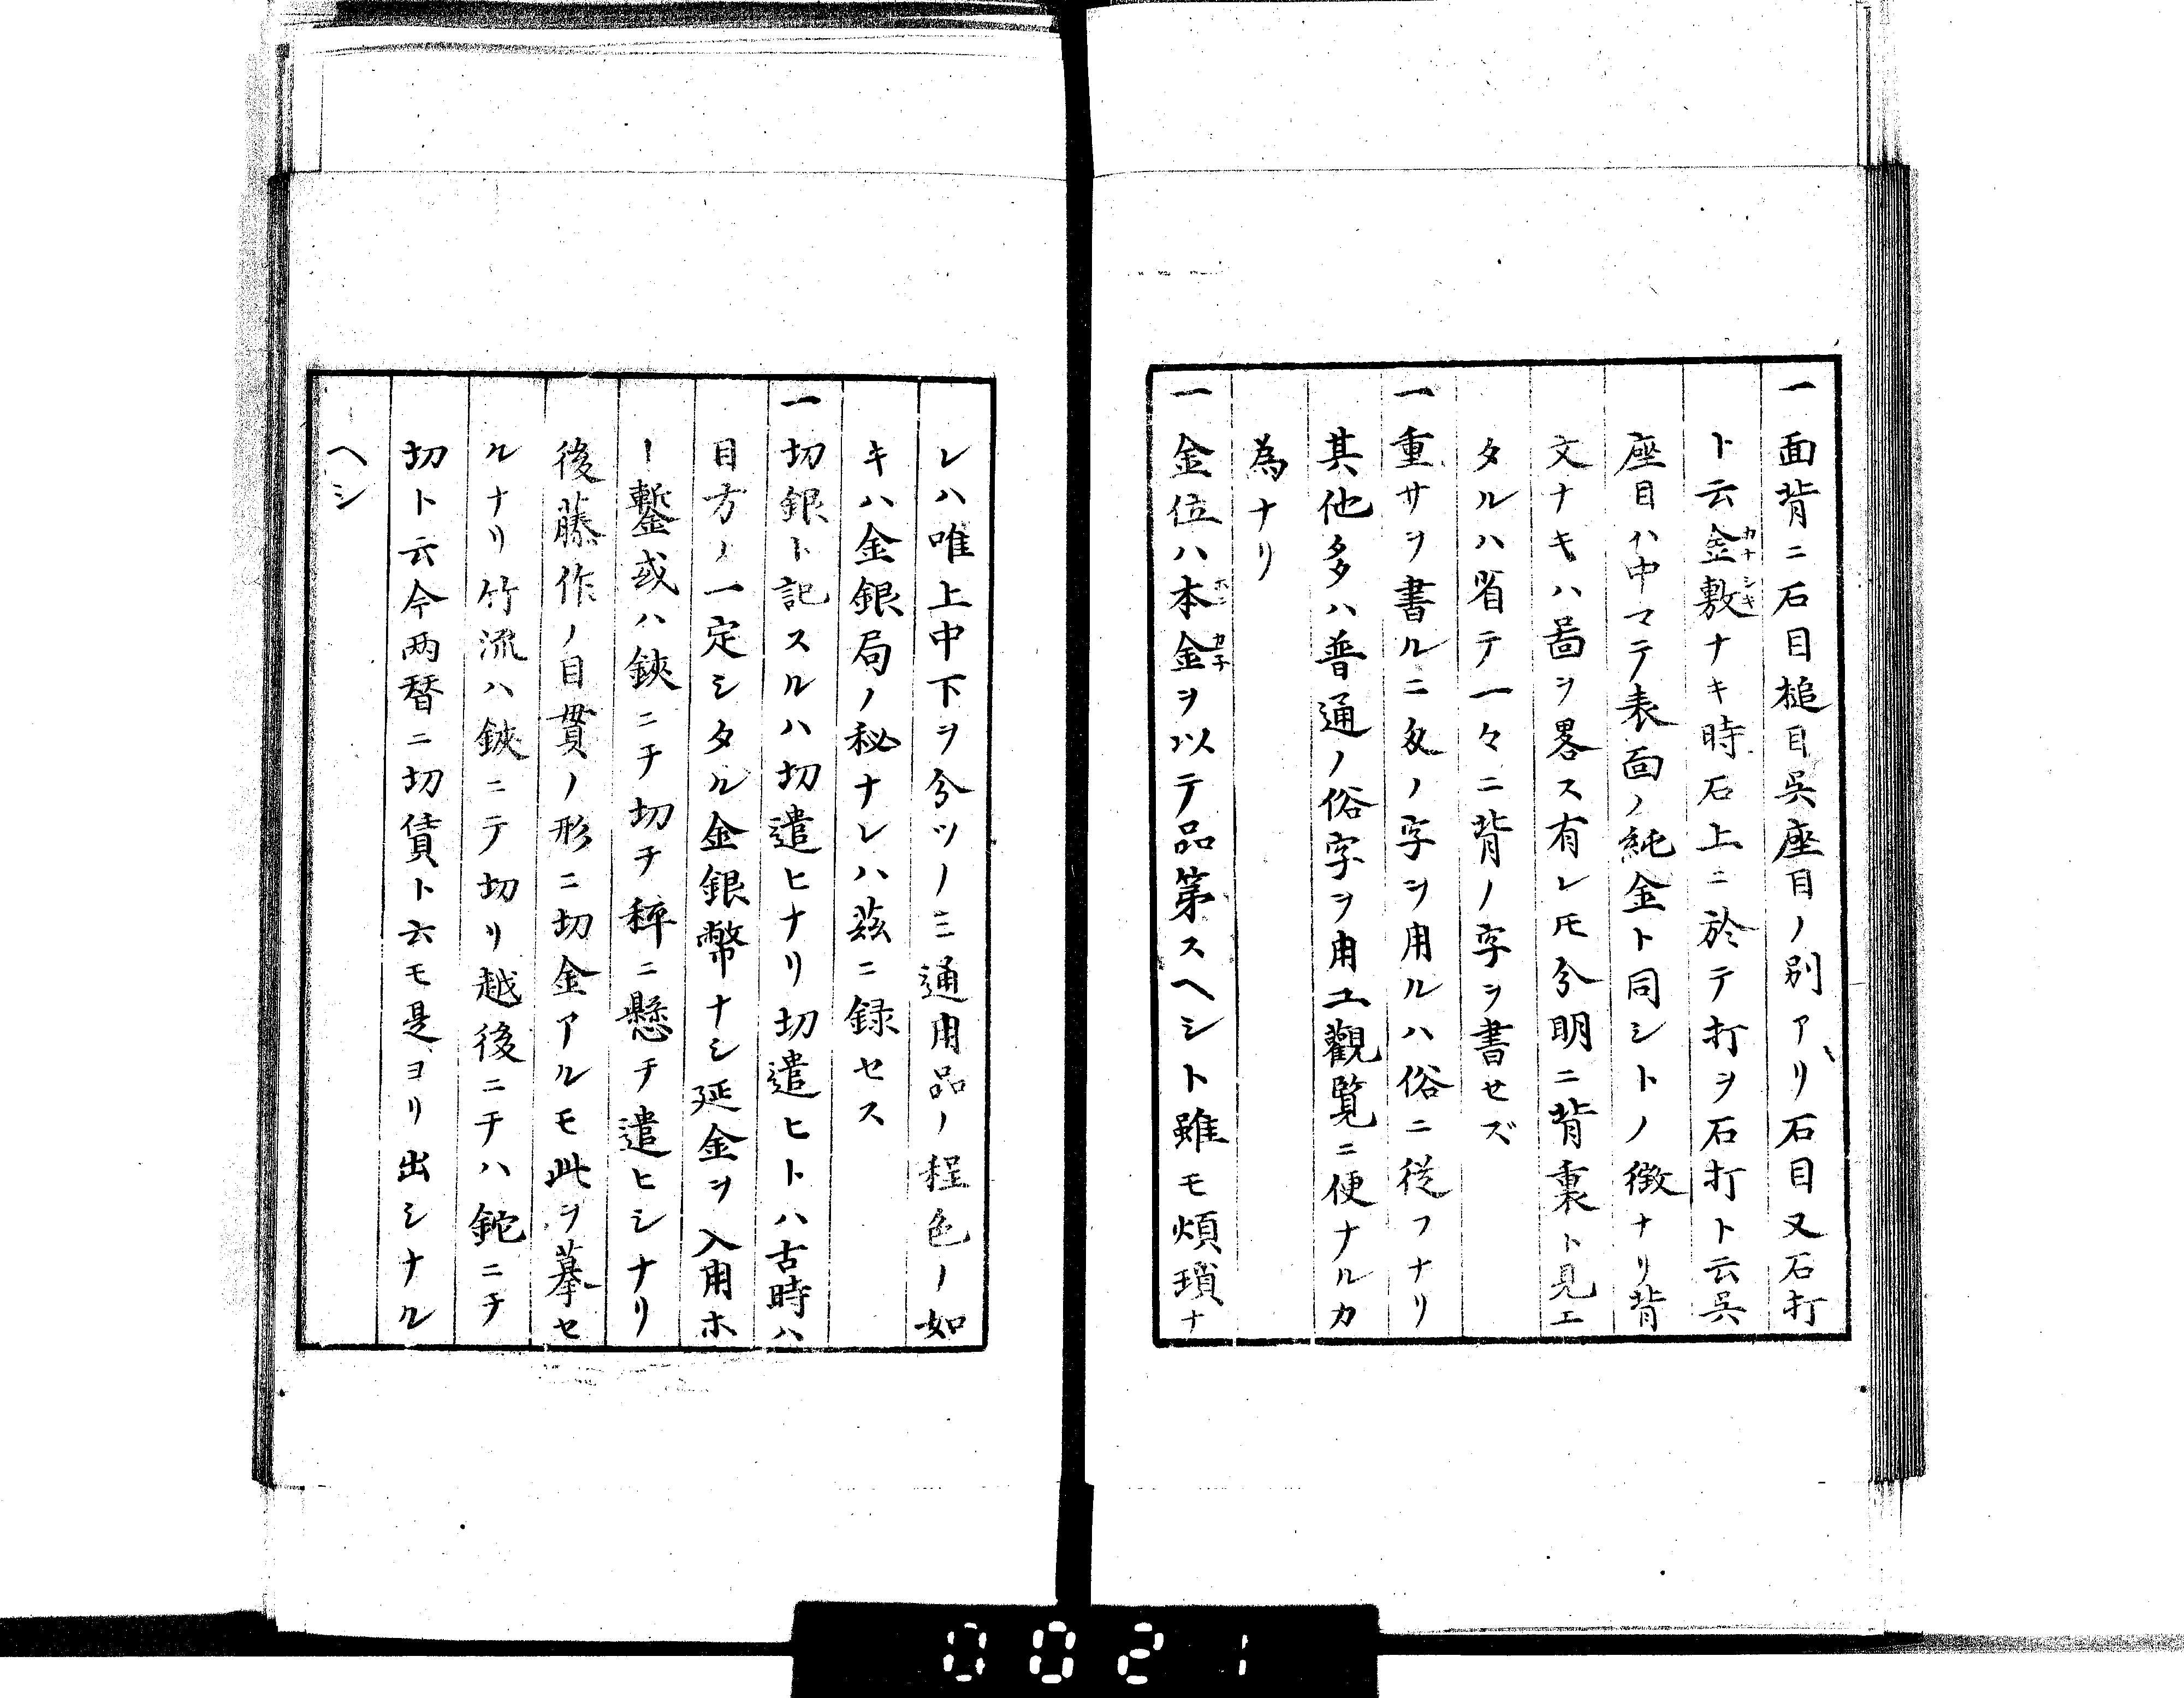 一面背ニ石目槌目呉座目ノ別アリ石目又石打
ト云金敷ナキ時石上ニ於テ打ヲ石打ト云呉
カナシキ
座目ハ中マテ表面ノ純金ト同シトノ徴ナリ背
文ナキハ啚ヲ畧ス有レ𪜈分明ニ背裏ト見エ
タルハ省テ一々ニ背ノ字ヲ書セズ
一重サヲ書ルニ匁ノ字ヲ用ルハ俗ニ従フナリ
其他多ハ普通ノ俗字ヲ用ユ觀覧ニ便ナルカ
為ナリ
一金位ハ本金ヲ以テ品第スヘシト雖モ煩瑣ナ
ホンカネ
レハ唯上中下ヲ分ツノミ通用品ノ程色ノ如
キハ金銀局ノ秘ナレハ茲ニ録セス
一切銀ト記スルハ切遣ヒナリ切遣ヒトハ古時ハ
目方ノ一定シタル金銀幣ナシ延金ヲ入用ホ
ー鏨或ハ鋏ニテ切テ秤ニ懸テ遣ヒシナリ
後藤作ノ目貫ノ形ニ切金アルモ此ヲ摹セ
ルナリ竹流ハ鋏ニテ切リ越後ニテハ鉈ニテ
切ト云今両替ニ切賃ト云モ是ヨリ出シナル
ヘシ
0021